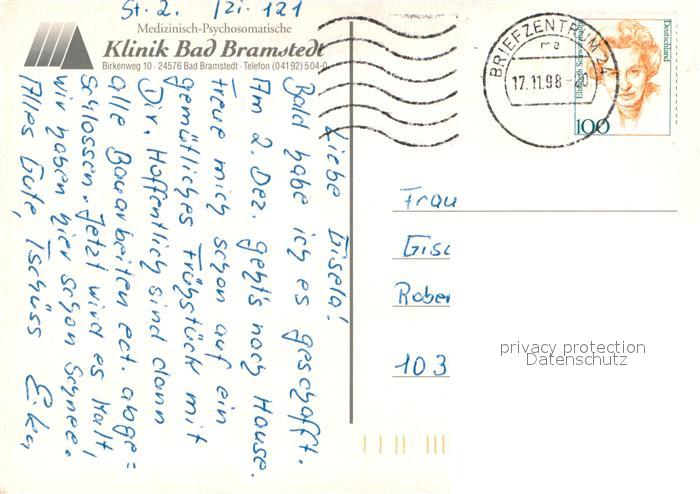 St. 2. Zi. 121
Medizinisch-Psychosomatische
Klinik Bad Bramstedt
Birkenweg 10 · 24576 Bad Bramstedt · Telefon (04192) 504-0
Liebe Gisela!
Bald habe ich es geschafft.
Am 2. Dez. geht's nach Hause.
Freue mich schon auf ein
gemütliches Frühstück mit
Dir. Hoffentlich sind dann
alle Bauarbeiten ect. abge=
schlossen. Jetzt wird es kalt,
wir haben hier schon Schnee.
Alles Gute, Tschüss
BRIEFZENTRUM 24
17.11.98-20
Deutschland
100
Frau
Gise
Rober
103
privacy protection
Datenschutz